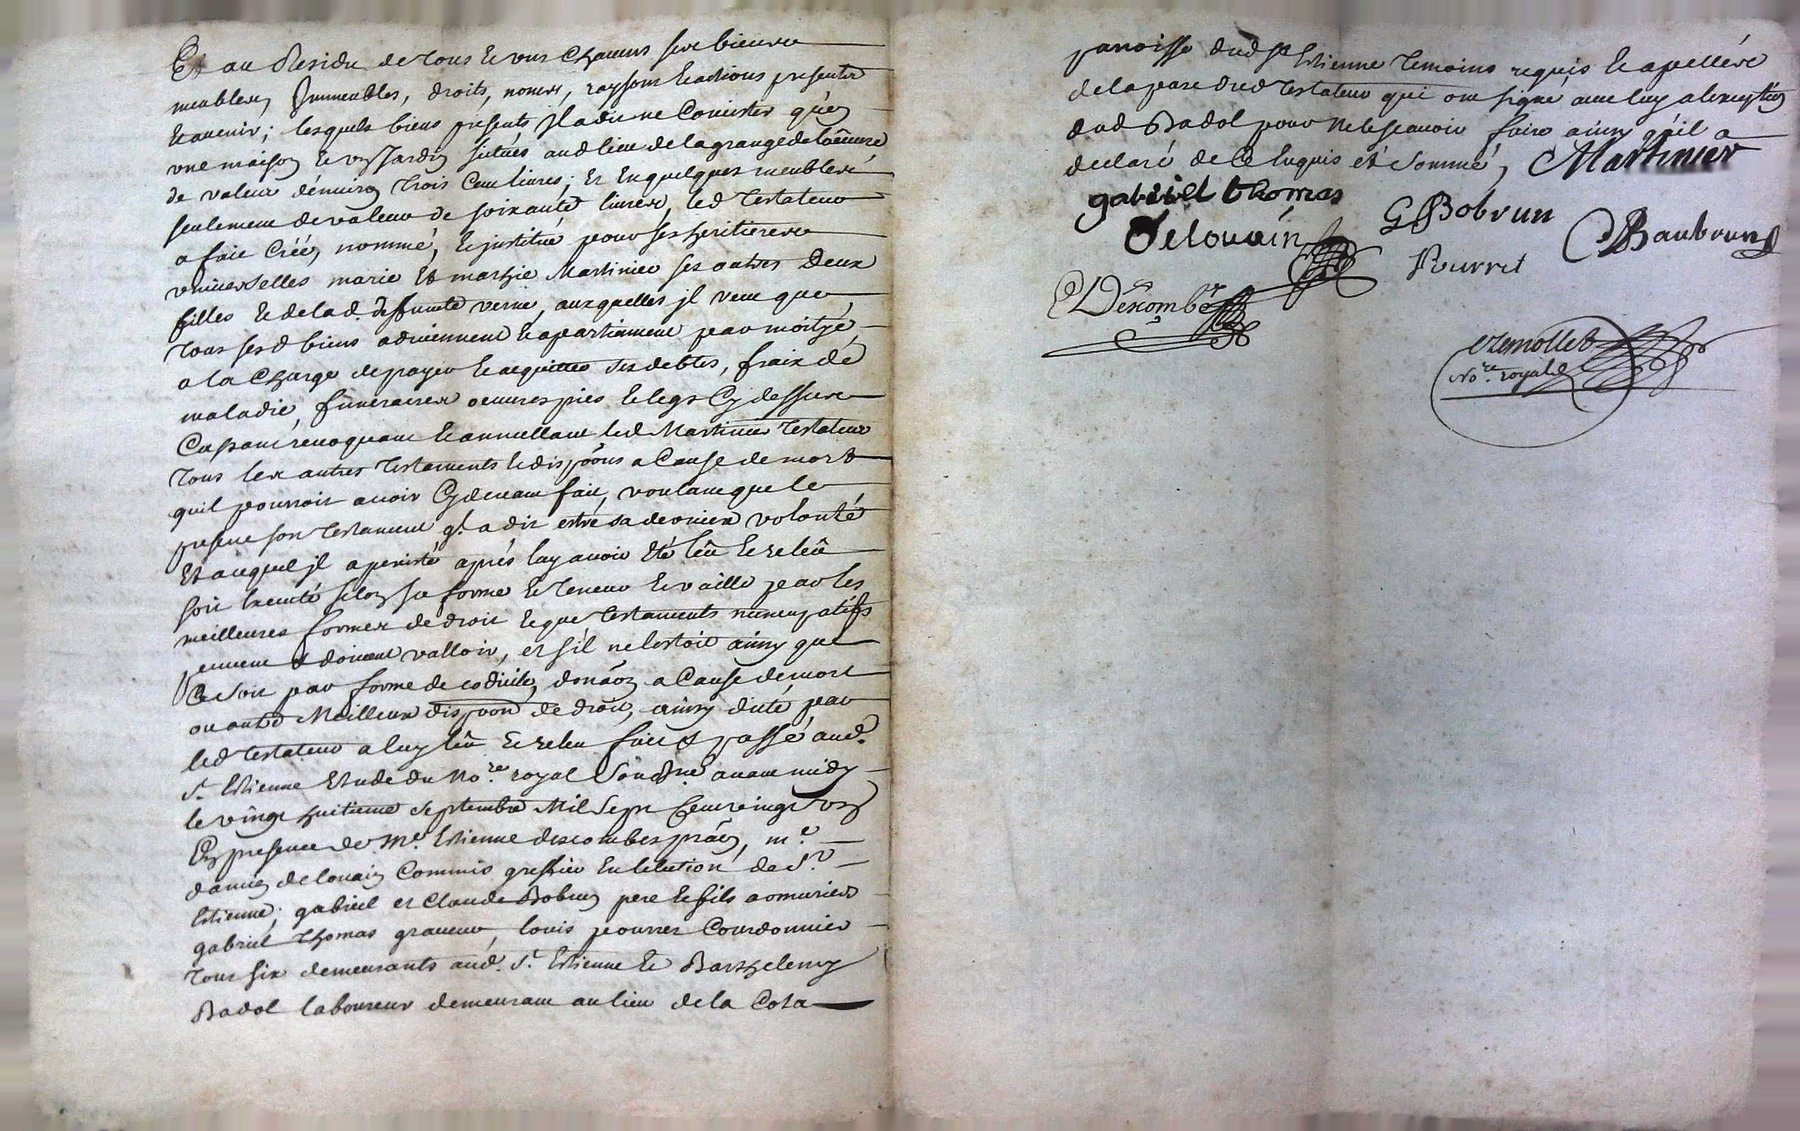 Et au Residu de tous et uns Chacuns ses biens
meubles, Immeubles, droits, noms, raysons et actions presents
et avenir; lesquels biens presents jl a dit ne Consister qu'en
une maison et un Jardin situés aud lieu de la grange de loeuvre
de valeur d'environ trois Cent livres; et En quelques meubles
seulement de valeur de soixante livres, led testateur
a fait Créé, nommé, et justitué pour ses heritieres
universelles marie et marthie Martinier ses autres Deux
filles et de lad. deffunte verne, auxquelles jl veut que
tous sesd biens adviennent et apartiennent par moityé
a la Charge de payer et acquitter ses debtes, fraix de
maladie, funeraires oeuvres pies et legs Cy dessus
Cassant revoquant et annullant led Martinier testateur
tous les autres testaments et dispõons a Cause de mort
quil pourroit avoir Cy devant fait, voulant que le
present son testament ql. a dit estre sa derniere volonté
Et auquel jl a persisté aprés luy avoir été lêu et relêu
soit Executé selon sa forme et teneur et vaille par les
meilleures formes de droit et que testaments nuncupatifs
peuvent & doivent valloir, et s'il ne lestoit ainsy que
Ce soit par forme de codicile, donãon a Cause de mort
ou autre Meilleure dispõon de droit, ainsy dicté par
led testateur a luy lêu et releu fait & passé aud.
St. Estienne Etude du Nore. royal Sousné avant midy
le vingt huitieme septembre Mil Sept Cent vingt un
En presence de Me. Estienne descombes prãen, me.
damien delouain Commis greffier En lelection de St.
Estienne; gabriel et Claude Bobrun pere et fils armuriers
gabriel thomas graveur, louis pourret Courdonnier
tous six demeurants aud. St. Estienne et Barthelemy
Badol laboureur demeurant au lieu de la Cota
paroisse dud St. Estienne temoins requis et apellés
de la part dud testateur qui ont signé avec luy alexeption
dud Badol pour ne le sçavoir faire ainsy qu'il a
declaré de Ce Enquis et Sommé, Martinier
gabriel thomas
GBobrun
Delouain
Baubrun
Pourret
Descombes
Nore. royal